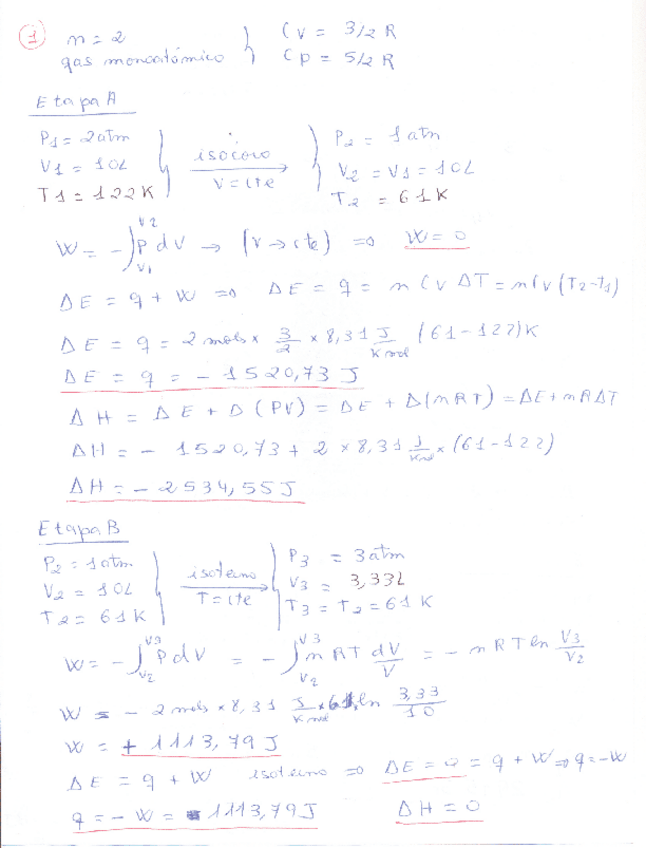 1 n = 2 } Cv = 3/2 R
gas monoatómico } Cp = 5/2 R
Etapa A
P1 = 2 atm
V1 = 10L
T1 = 122K
isócoro
V = cte
P2 = 1 atm
V2 = V1 = 10L
T2 = 61K
W = - ∫V1V2 P dV → (V → cte) ⇒ W = 0
ΔE = q + W ⇒ ΔE = q = n Cv ΔT = n Cv (T2 - T1)
ΔE = q = 2 mols × 3/2 × 8,31 J/K mol (61 - 122) K
ΔE = q = - 1520,73 J
ΔH = ΔE + Δ(PV) = ΔE + Δ(nRT) = ΔE + nRΔT
ΔH = - 1520,73 + 2 × 8,31 J/Kmol × (61 - 122)
ΔH = - 2534,55 J
Etapa B
P2 = 1 atm
V2 = 10L
T2 = 61K
isotermo
T = cte
P3 = 3 atm
V3 = 3,33L
T3 = T2 = 61K
W = - ∫V2V3 P dV = - ∫V2V3 nRT dV/V = - nRT ln V3/V2
W = - 2 mols × 8,31 J/K mol × 61 ln 3,33/10
W = + 1113,79 J
ΔE = q + W isotermo ⇒ ΔE = 0 = q + W ⇒ q = -W
q = - W = - 1113,79 J ΔH = 0